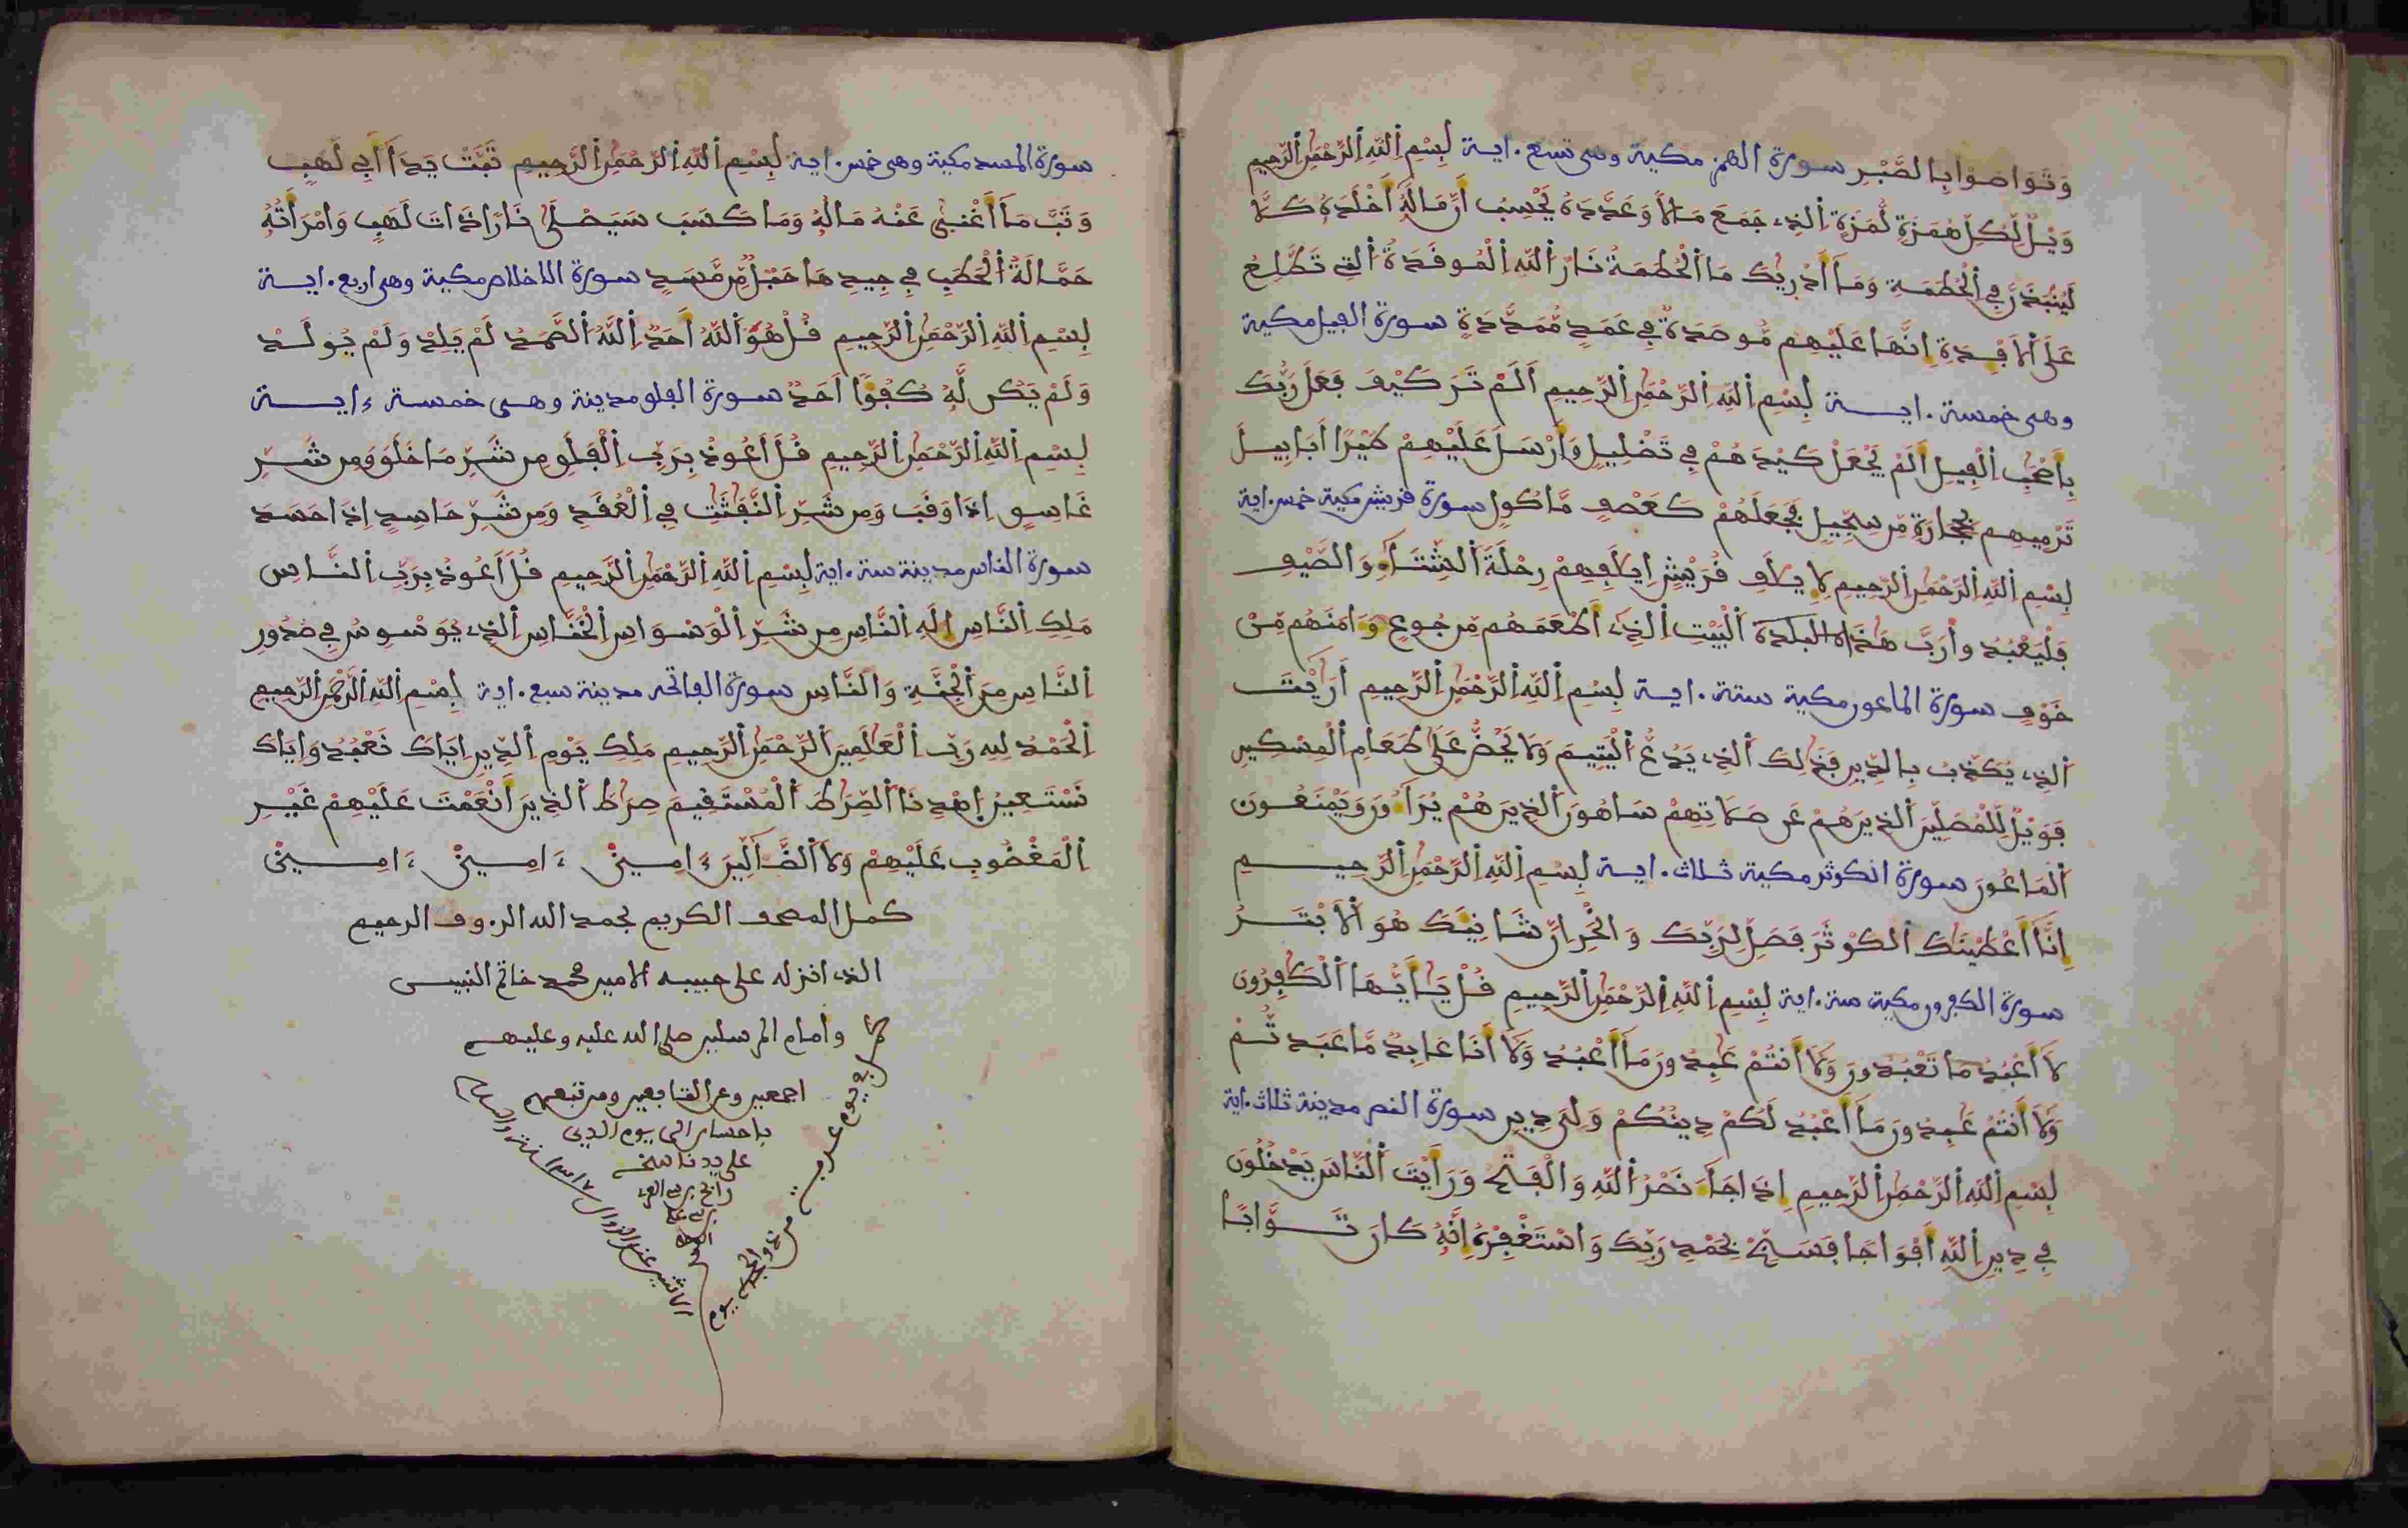 وَتَوَاصَوْا بِالصَّبْرِ سورة الهمز مكية وهى تسع ءاية بِسْمِ اِللَّهِ اِلرَّحْمَٰنِ اِلرَّحِيمِ
وَيْلٌ لِّكُلِّ هُمَزَةٍ لُّمَزَةٍ اِلذِے جَمَعَ مَالاً وَعَدَّدَهُ يَحْسِبُ أَنَّ مَالَهُ أَخْلَدَهُ كَلَّا
لَيُنۢبَذَنَّ فِي اِلْحُطَمَةِ وَمَا أَدْرِيٰكَ مَا اَلْحُطَمَةُ نَارُ اُللَّهِ اِلْمُوقَدَةُ اُلتِي تَطَّلِعُ
عَلَى اَلَافْـِٕدَةِ إِنَّهَا عَلَيْهِم مُّوصَدَةٌ فِي عَمَدٍ مُّمَدَّدَةٍ سورة الفيل مكية
وهى خمسة ءاية بِسْمِ اِللَّهِ اِلرَّحْمَٰنِ اِلرَّحِيمِ أَلَمْ تَرَ كَيْفَ فَعَلَ رَبُّكَ
بِأَصْحَٰبِ اِلْفِيلِ أَلَمْ يَجْعَلْ كَيْدَهُمْ فِي تَضْلِيلٍ وَأَرْسَلَ عَلَيْهِمْ طَيْرًا اَبَابِيلَ
تَرْمِيهِم بِحِجَارَةٍ مِّن سِجِّيلٍ فَجَعَلَهُمْ كَعَصْفٍ مَّاكُولٍ سورة قريش مكية خمس ءاية
بِسْمِ اِللَّهِ اِلرَّحْمَٰنِ اِلرَّحِيمِ لِإِيلَٰفِ قُرَيْشٍ اِيلَٰفِهِمْ رِحْلَةَ اَلشِّتَاءِ وَالصَّيْفِ
فَلْيَعْبُدُوا رَبَّ هَٰذَا اَلْبَيْتِ اِلذِے أَطْعَمَهُم مِّن جُوعٍ وَءَامَنَهُم مِّنْ
خَوْفٍ سورة الماعون مكية ستة ءاية بِسْمِ اِللَّهِ اِلرَّحْمَٰنِ اِلرَّحِيمِ أَرَٰيْتَ
اَلذِے يُكَذِّبُ بِالدِّينِ فَذَٰلِكَ اَلذِے يَدُعُّ اُلْيَتِيمَ وَلَا يَحُضُّ عَلَىٰ طَعَامِ اِلْمِسْكِينِ
فَوَيْلٌ لِّلْمُصَلِّينَ اَلذِينَ هُمْ عَن صَلَاتِهِمْ سَاهُونَ اَلذِينَ هُمْ يُرَاءُونَ وَيَمْنَعُونَ
اَلْمَاعُونَ سورة الكوثر مكية ثلاث ءاية بِسْمِ اِللَّهِ اِلرَّحْمَٰنِ اِلرَّحِيمِ
إِنَّا أَعْطَيْنَٰكَ اَلْكَوْثَرَ فَصَلِّ لِرَبِّكَ وَانْحَرِ اِنَّ شَانِئَكَ هُوَ اَلَابْتَرُ
سورة الكفرون مكية ستة ءاية بِسْمِ اِللَّهِ اِلرَّحْمَٰنِ اِلرَّحِيمِ قُلْ يَا أَيُّهَا اَلْكَٰفِرُونَ
لَا أَعْبُدُ مَا تَعْبُدُونَ وَلَا أَنتُمْ عَٰبِدُونَ مَا أَعْبُدُ وَلَا أَنَا عَابِدٌ مَّا عَبَدتُّمْ
وَلَا أَنتُمْ عَٰبِدُونَ مَا أَعْبُدُ لَكُمْ دِينُكُمْ وَلِيَ دِينِ سورة النصر مدينة ثلاث ءاية
بِسْمِ اِللَّهِ اِلرَّحْمَٰنِ اِلرَّحِيمِ إِذَا جَاءَ نَصْرُ اُللَّهِ وَالْفَتْحُ وَرَأَيْتَ اَلنَّاسَ يَدْخُلُونَ
فِي دِينِ اِللَّهِ أَفْوَاجًا فَسَبِّحْ بِحَمْدِ رَبِّكَ وَاسْتَغْفِرْهُ إِنَّهُ كَانَ تَوَّابًا
سورة المسد مكية وهى خمس ءاية بِسْمِ اِللَّهِ اِلرَّحْمَٰنِ اِلرَّحِيمِ تَبَّتْ يَدَا أَبِي لَهَبٍ
وَتَبَّ مَا أَغْنَىٰ عَنْهُ مَالُهُ وَمَا كَسَبَ سَيَصْلَىٰ نَارًا ذَاتَ لَهَبٍ وَامْرَأَتُهُ
حَمَّالَةُ اُلْحَطَبِ فِي جِيدِهَا حَبْلٌ مِّن مَّسَدٍ سورة الاخلاص مكية وهى اربع ءاية
بِسْمِ اِللَّهِ اِلرَّحْمَٰنِ اِلرَّحِيمِ قُلْ هُوَ اَللَّهُ أَحَدٌ اِللَّهُ اُلصَّمَدُ لَمْ يَلِدْ وَلَمْ يُولَدْ
وَلَمْ يَكُن لَّهُ كُفُؤًا اَحَدٌ سورة الفلق مدينة وهى خمسة ءاية
بِسْمِ اِللَّهِ اِلرَّحْمَٰنِ اِلرَّحِيمِ قُلْ أَعُوذُ بِرَبِّ اِلْفَلَقِ مِن شَرِّ مَا خَلَقَ وَمِن شَرِّ
غَاسِقٍ اِذَا وَقَبَ وَمِن شَرِّ اِلنَّفَّٰثَٰتِ فِي اِلْعُقَدِ وَمِن شَرِّ حَاسِدٍ اِذَا حَسَدَ
سورة الناس مدينة ستة ءاية بِسْمِ اِللَّهِ اِلرَّحْمَٰنِ اِلرَّحِيمِ قُلْ أَعُوذُ بِرَبِّ اِلنَّاسِ
مَلِكِ اِلنَّاسِ إِلَٰهِ اِلنَّاسِ مِن شَرِّ اِلْوَسْوَاسِ اِلْخَنَّاسِ اِلذِے يُوَسْوِسُ فِي صُدُورِ
اِلنَّاسِ مِنَ اَلْجِنَّةِ وَالنَّاسِ سورة الفاتحه مدينة سبع ءاية بِسْمِ اِللَّهِ اِلرَّحْمَٰنِ اِلرَّحِيمِ
اِلْحَمْدُ لِلهِ رَبِّ اِلْعَٰلَمِينَ اَلرَّحْمَٰنِ اِلرَّحِيمِ مَلِكِ يَوْمِ اِلدِّينِ إِيَّاكَ نَعْبُدُ وَإِيَّاكَ
نَسْتَعِينُ اِهْدِنَا اَلصِّرَٰطَ اَلْمُسْتَقِيمَ صِرَٰطَ اَلذِينَ أَنْعَمْتَ عَلَيْهِمْ غَيْرِ
اِلْمَغْضُوبِ عَلَيْهِمْ وَلَا اَلضَّالِّينَ ءَامِينْ ءَامِينْ ءَامِينْ
كمل المصحف الكريم بحمد الله الرءوف الرحيم
الذے انزله على حبيبه الامين محمد خاتم النبيين
وامام المرسلين صلى الله عليه وعليهم
اجمعين وعن التابعين ومن تبعهم
باحسان الى يوم الدين
على يد ناسخه